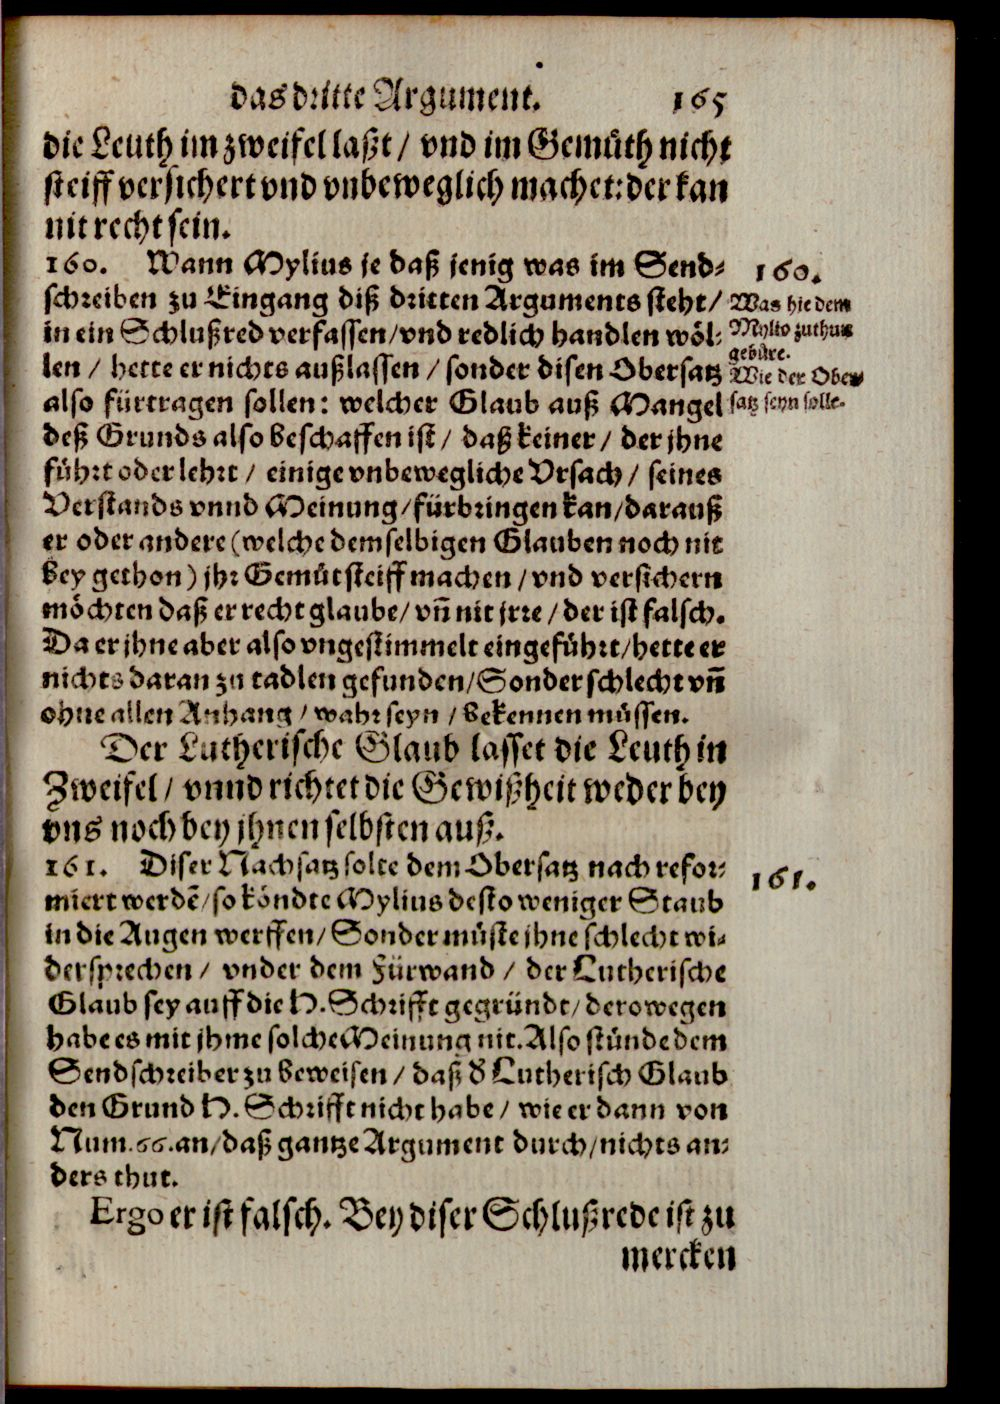 das dritte Argument. 165
die Leuth im zweifel laßt / vnd im Gemůth nicht
steiff versichert vnd vnbeweglich machet: der kan
nit recht sein.
160. Wann Mylius je daß jenig was im Send-
schreiben zu Eingang diß dritten Arguments steht/
in ein Schlußred verfassen/vnd redlich handlen wöl-
len / hette er nichts außlassen / sonder disen Obersatz
also fürtragen sollen: welcher Glaub auß Mangel
deß Grunds also beschaffen ist / daß keiner / der jhne
führt oder lehrt / einige vnbewegliche Vrsach / seines
Verstands vnnd Meinung/fürbringen kan/darauß
er oder andere (welche demselbigen Glauben noch nit
bey gethon) jhr Gemůt steiff machen / vnd versichern
möchten daß er recht glaube/ vñ nit jrre / der ist falsch.
Da er jhne aber also vngestimmelt eingeführt/hette er
nichts daran zu tadlen gefunden/Sonder schlecht vñ
ohne allen Anhang / wahr seyn / bekennen müssen.
160.
Was hie dem
Mylio zuthun
gebüre.
Wie der Ober-
satz seyn solle.
Der Lutherische Glaub lasset die Leuth in
Zweifel / vnnd richtet die Gewißheit weder bey
vns noch bey jhnen selbsten auß.
161. Diser Nachsatz solte dem Obersatz nach refor-
miert werdẽ/so köndte Mylius desto weniger Staub
in die Augen werffen/Sonder müste jhne schlecht wi-
dersprechen / vnder dem Fürwand / der Lutherische
Glaub sey auff die H. Schrifft gegründt/ derowegen
habe es mit jhme solche Meinung nit. Also stünde dem
Sendschreiber zu beweisen / daß ð Lutherisch Glaub
den Grund H. Schrifft nicht habe / wie er dann von
Num. 66. an/daß gantze Argument durch/nichts an-
ders thut.
161.
Ergo er ist falsch. Bey diser Schlußrede ist zu
mercken